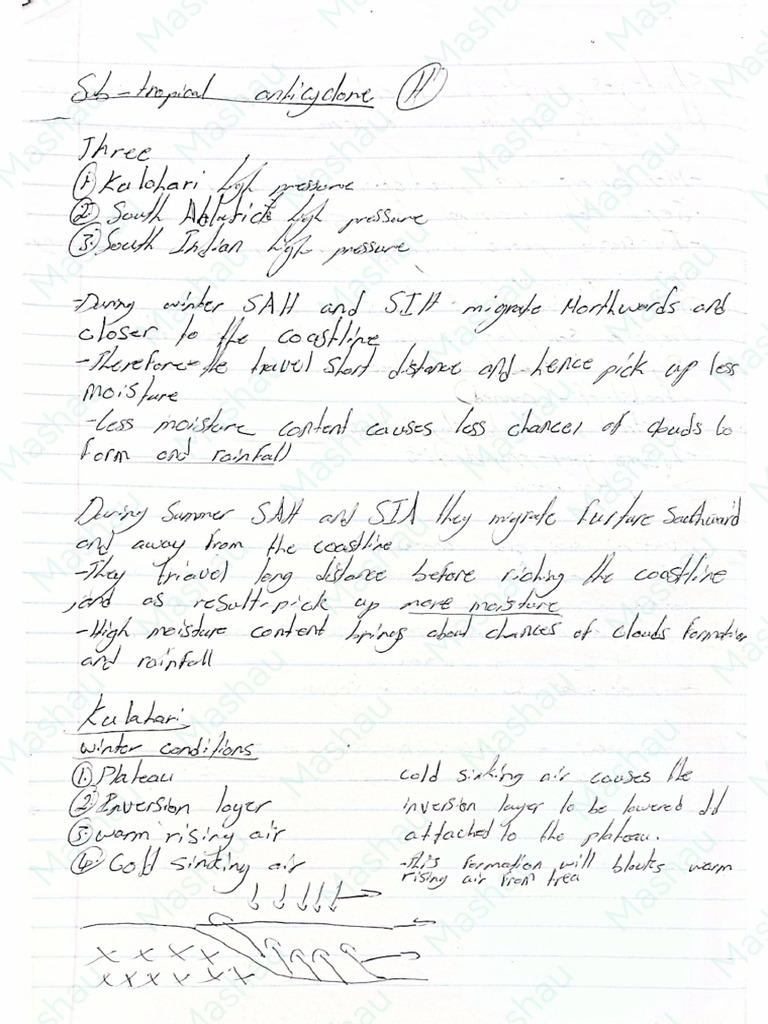 Sub-tropical anticyclone (H)
Three
① Kalahari high pressure
② South Atlantic high pressure
③ South Indian high pressure
-During winter SAH and SIH migrate Northwords and
closer to the coastline
-Therefore the travel short distance and hence pick up less
moisture
-Less moisture content causes less chances of clouds to
form and rainfall
During Summer SAH and SIH they migrate furture Southward
and away from the coastline
-They triavel long distance before riching the coastline
and as result-pick up more moisture
-High moisture content brings about chances of clouds formation
and rainfall
Kalahari
winter conditions
① Plateau
② Inversion layer
③ warm rising air
④ Cold sinking air
cold sinking air causes the
inversion layer to be lowered
attached to the plateau.
-This formation will blocks warm
rising air from
Mashau